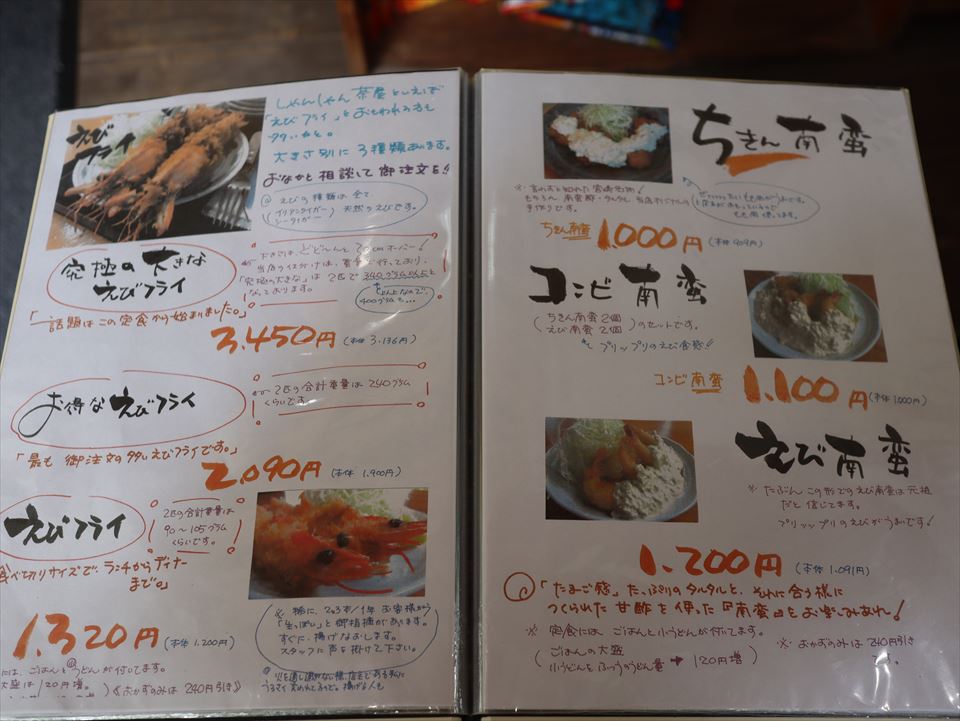 えび
フライ
しゃんしゃん茶屋といえば
「えびフライ」とおもわれる方も
多いかと。
大きさ別に3種類あります。
おなかと相談して御注文を!!
えびの種類は全て
天然のえびです。
究極の大きな
えびフライ
「話題はこの定食から始まりました。」
3.450円(本体 3.136円)
お得なえびフライ
2匹の合計重量は240グラム
くらいです
「最も御注文の多いえびフライです。」
2.090円(本体 1.900円)
えびフライ
2匹の合計重量は
90〜105グラム
くらいです。
食べ切りサイズでランチからディナー
まで。」
1.320円(本体 1.200円)
「生っぽい」と御指摘があります。
すぐに、揚げなおします。
スタッフに声を掛けて下さい。
ごはんとうどんが付いてます。
大盛は120円増。)《おかずのみは240円引き》
ちきん南蛮
※言わずと知れた宮崎名物!
もちろん、南蛮酢・タルタル、当店オリジナルの
手作りです。
ちきん南蛮 1000円(本体909円)
コンビ南蛮
(ちきん南蛮2個
えび南蛮2個)のセットです。
プリップリのえび食感!!
コンビ南蛮 1.100円(本体1.000円)
えび南蛮
※たぶんこの形でのえび南蛮は元祖
だと信じてます。
プリップリのえびがうまいです!
1.200円(本体 1.091円)
「たまご感」たっぷりのタルタルと、それに合う様に
つくられた甘酢を使った『南蛮』をお楽しみあれ!
※定食には、ごはんと小うどんが付てます。
(ごはんの大盛
小うどんをふつうのうどん量→120円増)
※おかずのみは240円引き